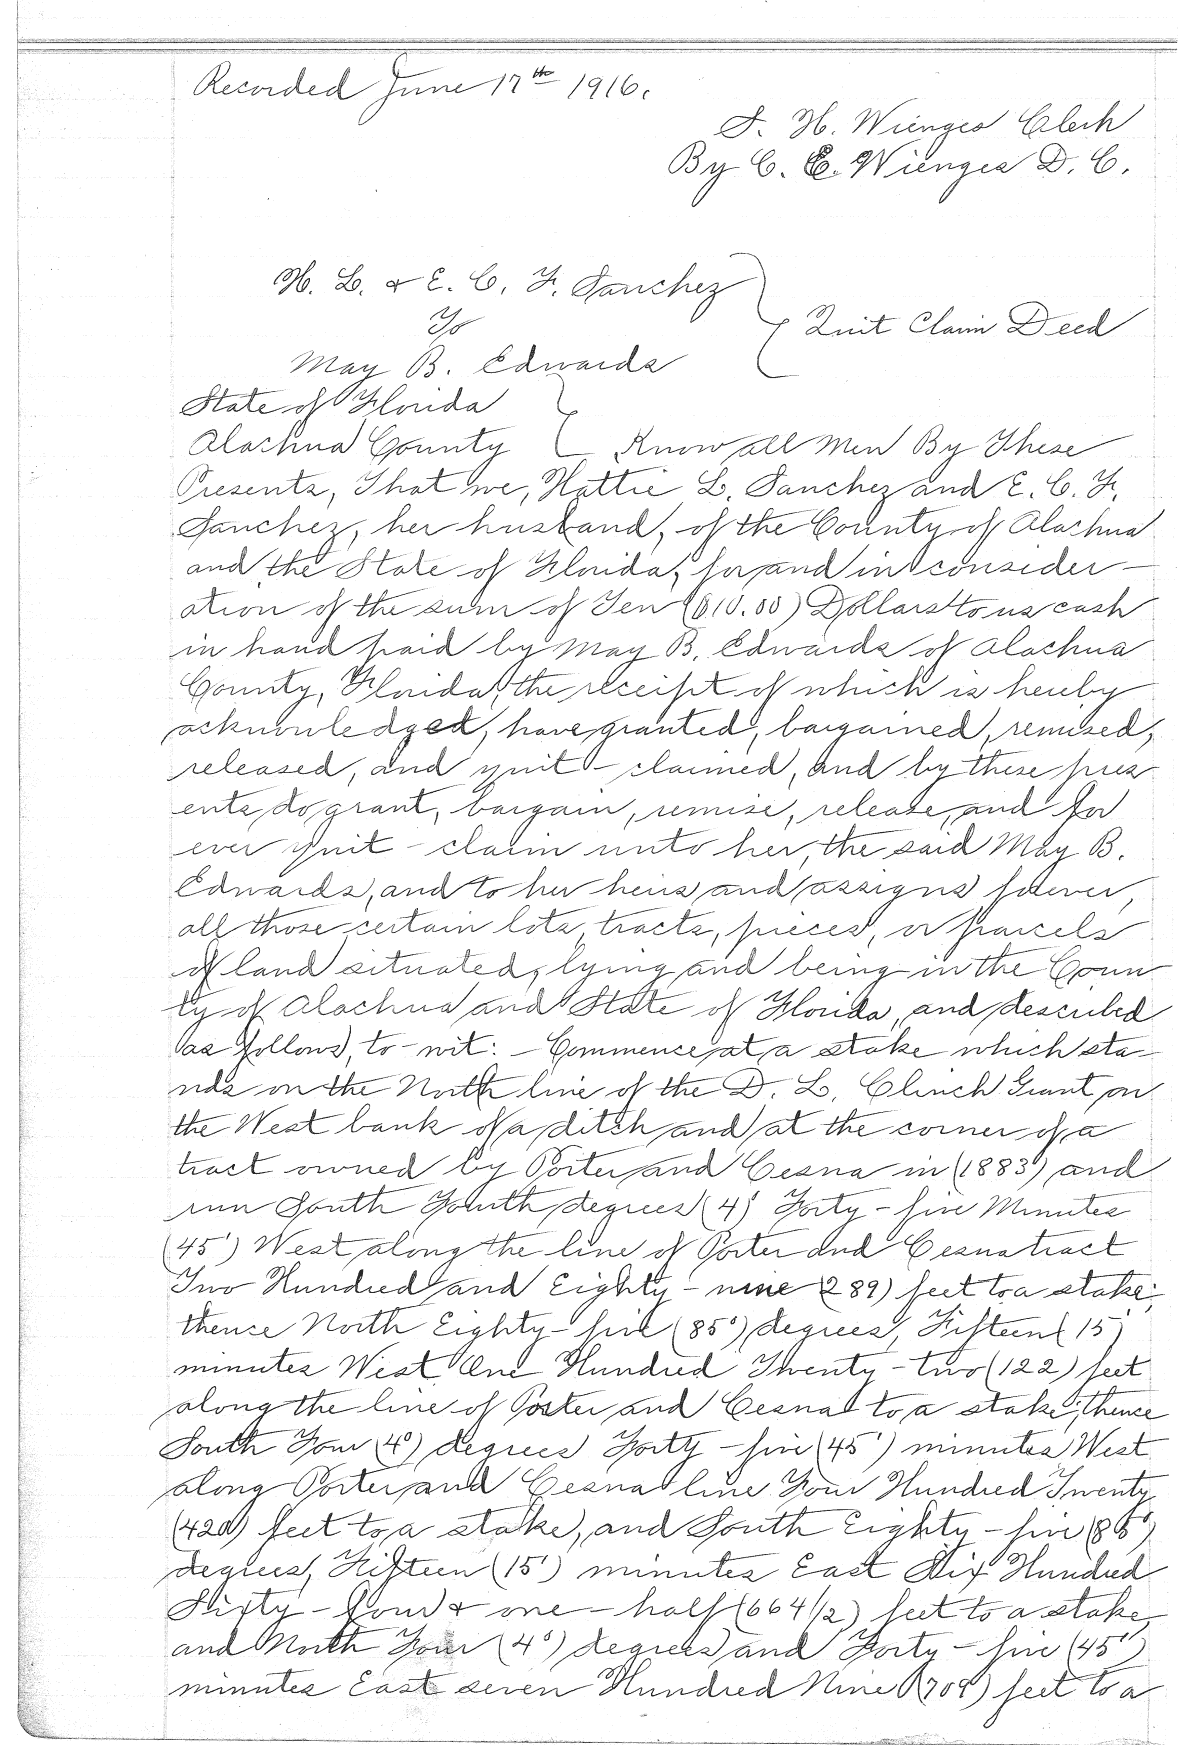 Recorded June 17th 1916.
S. H. Wienges Clerk
By C. E. Wienges D. C.
H. L. & E. C. F. Sanchez
To
Quit Claim Deed
May B. Edwards
State of Florida
Alachua County Know all Men By These
Presents, That we, Hattie L. Sanchez and E. C. F.
Sanchez, her husband, of the County of Alachua
and the State of Florida, for and in consider-
ation of the sum of Ten ($10.00) Dollars to us cash
in hand paid by May B. Edwards of Alachua
County, Florida, the receipt of which is hereby
acknowledged, have granted, bargained, remised,
released, and quit-claimed, and by these pres
ents do grant, bargain, remise, release, and for
ever quit-claim unto her, the said May B.
Edwards, and to her heirs and assigns forever,
all those certain lots, tracts, pieces, or parcels
of land situated, lying and being in the Coun
ty of Alachua and State of Florida, and described
as follows, to-wit:- Commence at a stake which sta-
nds on the North line of the D. L. Clinch Grant on
the West bank of a ditch and at the corner of a
tract owned by Porter and Cesna in (1883) and
run South Fourth degrees (4°) Forty-five Minutes
(45') West along the line of Porter and Cesna tract
Two Hundred and Eighty-nine (289) feet to a stake;
thence North Eighty-five (85°) degrees, Fifteen (15')
minutes West One Hundred Twenty-two (122) feet
along the line of Porter and Cesna to a stake; thence
South Four (4°) degrees Forty-five (45') minutes West
along Porter and Cesna line Four Hundred Twenty
(420) feet to a stake, and South Eighty-five (85°)
degrees, Fifteen (15') minutes East Six Hundred
Sixty-four & one-half (664 1/2) feet to a stake,
and North Four (4°) degrees and Forty-five (45')
minutes East seven Hundred Nine (709) feet to a